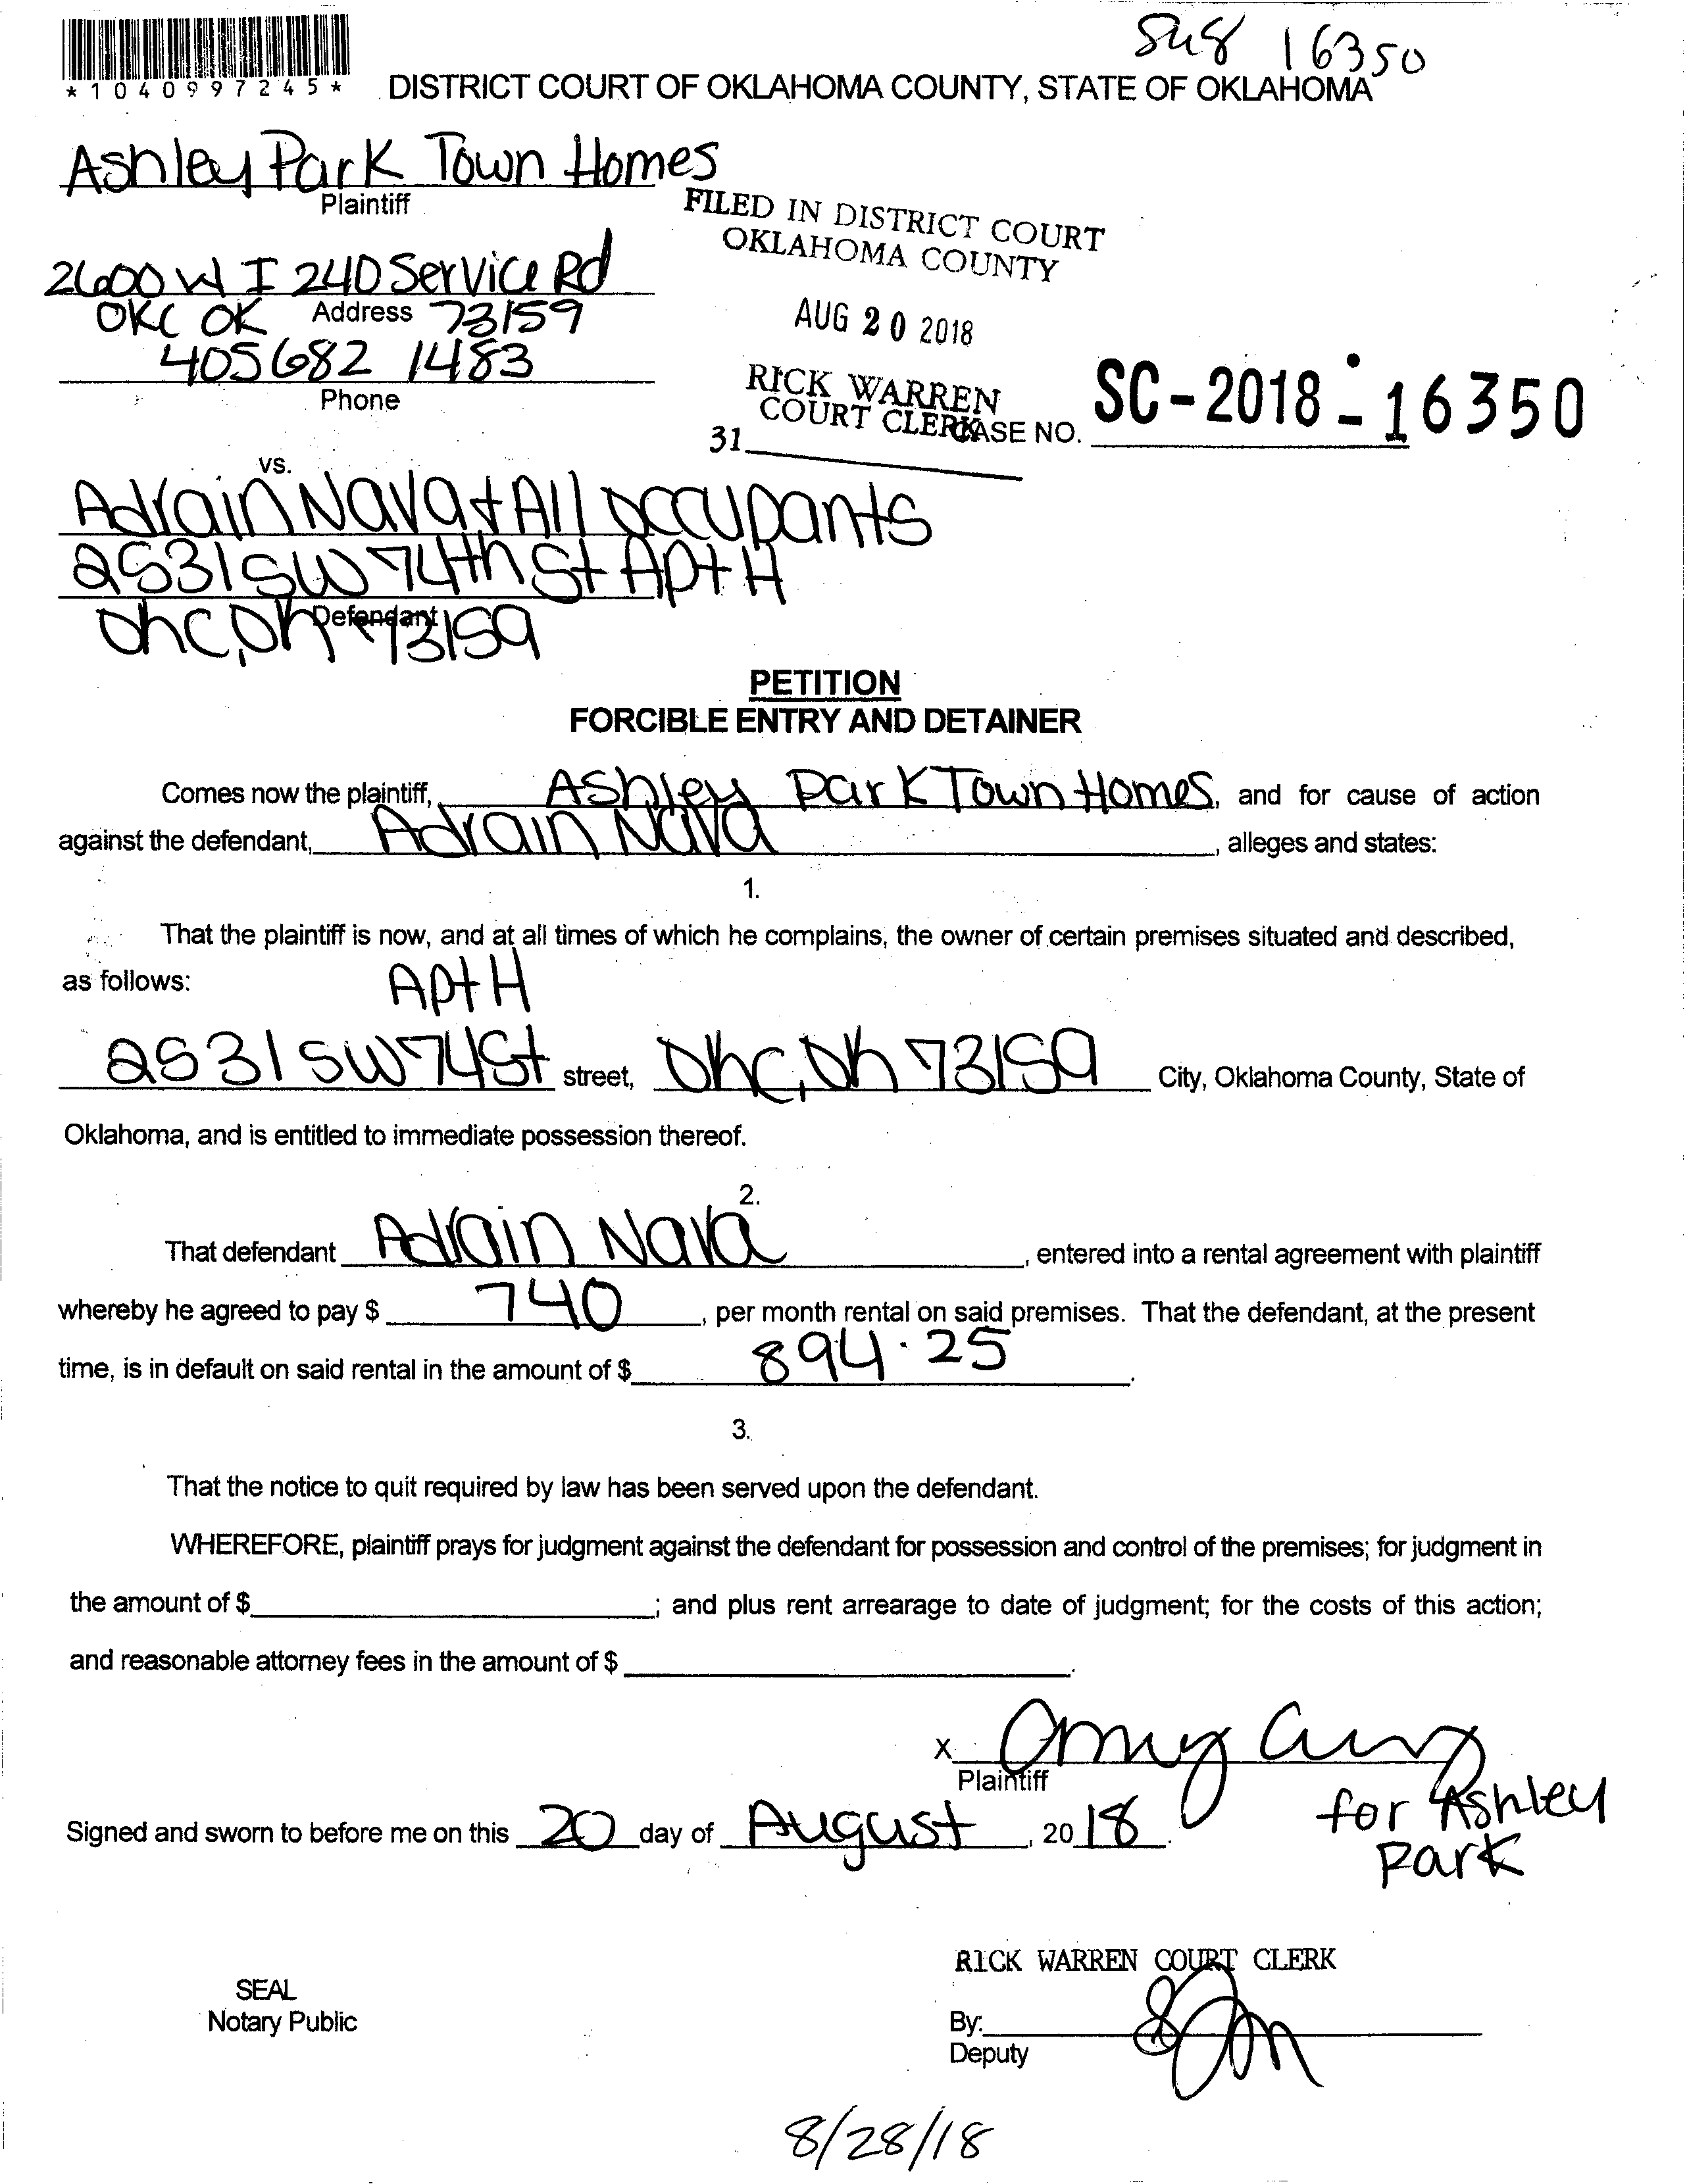 16350
*1040997245*
DISTRICT COURT OF OKLAHOMA COUNTY, STATE OF OKLAHOMA
Ashley Park Town Homes
Plaintiff
FILED IN DISTRICT COURT
OKLAHOMA COUNTY
2600 W I 240 Service Rd
OKC OK Address 73159
AUG 20 2018
405 682 1483
Phone
RICK WARREN
COURT CLERK
31
CASE NO. SC-2018-16350
vs.
Adrain Nava + All occupants
2531 SW 74th St Apt H
Okc, Ok 73159
Defendant
PETITION
FORCIBLE ENTRY AND DETAINER
Comes now the plaintiff, Ashley Park Town Homes, and for cause of action
against the defendant, Adrain Nava, alleges and states:
1.
That the plaintiff is now, and at all times of which he complains, the owner of certain premises situated and described,
as follows:
Apt H
2531 SW 74 St street, Okc, Ok 73159 City, Oklahoma County, State of
Oklahoma, and is entitled to immediate possession thereof.
2.
That defendant Adrain Nava, entered into a rental agreement with plaintiff
whereby he agreed to pay $ 740, per month rental on said premises. That the defendant, at the present
time, is in default on said rental in the amount of $ 894.25.
3.
That the notice to quit required by law has been served upon the defendant.
WHEREFORE, plaintiff prays for judgment against the defendant for possession and control of the premises; for judgment in
the amount of $ ; and plus rent arrearage to date of judgment; for the costs of this action;
and reasonable attorney fees in the amount of $ .
X Amy
Plaintiff
for Ashley
Park
Signed and sworn to before me on this 20 day of August, 2018.
RICK WARREN COURT CLERK
SEAL
Notary Public
By:
Deputy
8/28/18